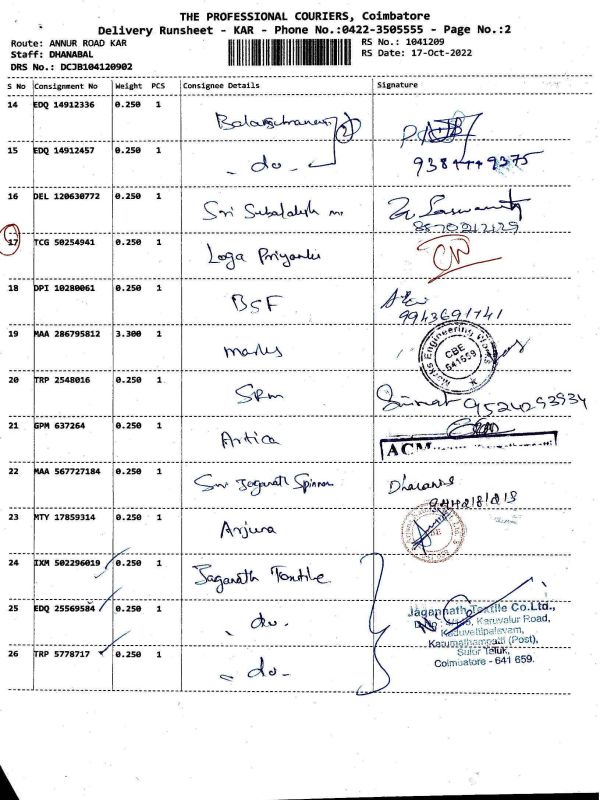 THE PROFESSIONAL COURIERS, Coimbatore
Delivery Runsheet - KAR - Phone No.:0422-3505555 - Page No.:2
Route: ANNUR ROAD KAR
Staff: DHANABAL
DRS No.: DCJB104120902
RS No.: 1041209
RS Date: 17-Oct-2022
S No Consignment No Weight PCS Consignee Details Signature
14 EDQ 14912336 0.250 1
15 EDQ 14912457 0.250 1 - do -
16 DEL 120630772 0.250 1 Sri
17 TCG 50254941 0.250 1 Loga Priyanka
18 DPI 10280061 0.250 1 BSF
9943691741
19 MAA 286795812 3.300 1 marks
Marks Engineering Works
CBE
641559
20 TRP 2548016 0.250 1 SRM 9524293934
21 GPM 637264 0.250 1 Artica
ACM
22 MAA 567727184 0.250 1 Sri Jaganath Spinners
23 MTY 17859314 0.250 1 Arjuna
24 IXM 502296019 0.250 1 Jaganath Textile
25 EDQ 25569584 0.250 1 - do -
26 TRP 5778717 0.250 1 - do -
Jagannath Textile Co.Ltd.,
Karuvalur Road,
Kaduvettipalayam,
Karumathampatti (Post),
Sulur Taluk,
Coimbatore - 641 659.